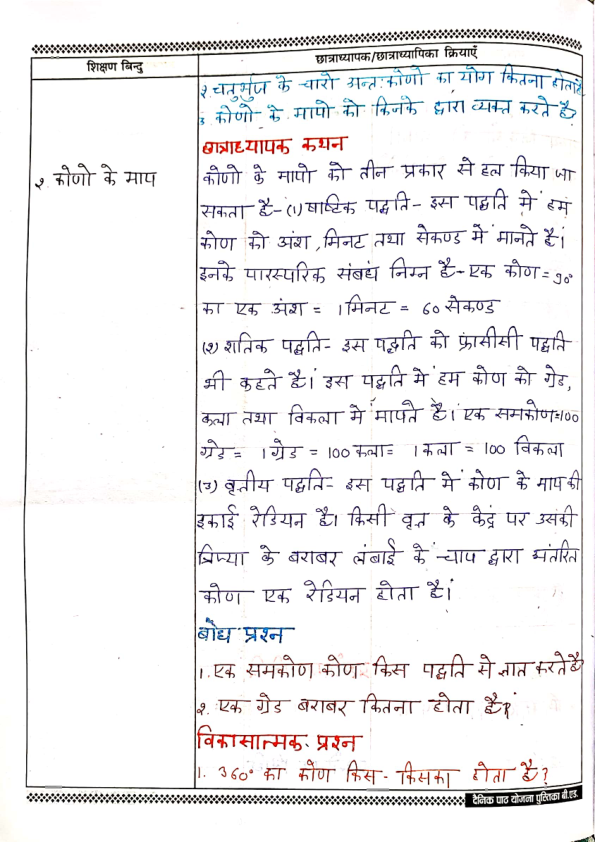 शिक्षण बिन्दु
छात्राध्यापक/छात्राध्यापिका क्रियाएँ
२. चतुर्भुज के चारो अन्तःकोणो का योग कितना होता है
3. कोणो के मापो को किनके द्वारा व्यक्त करते है?
छात्राध्यापक कथन
२. कोणो के माप
कोणो के मापो को तीन प्रकार से हल किया जा
सकता है- (1) षाष्टिक पद्धति- इस पद्धति में हम
कोण को अंश, मिनट तथा सेकण्ड में मानते है।
इनके पारस्परिक संबंध निम्न है- एक कोण = 90°
का एक अंश = 1 मिनट = 60 सेकण्ड
(२) शतिक पद्धति- इस पद्धति को फ्रांसीसी पद्धति
भी कहते है। इस पद्धति में हम कोण को ग्रेड,
कला तथा विकला में मापते है। एक समकोण=100
ग्रेड = 1 ग्रेड = 100 कला= 1 कला = 100 विकला
(3) वृतीय पद्धति- इस पद्धति में कोण के माप की
इकाई रेडियन है। किसी वृत के केंद्र पर उसकी
त्रिज्या के बराबर लंबाई के चाप द्वारा अंतरित
कोण एक रेडियन होता है।
बोध प्रश्न
1. एक समकोण कोण किस पद्धति से ज्ञात करते है
२. एक ग्रेड बराबर कितना होता है?
विकासात्मक प्रश्न
1. 360° का कोण किस-किसका होता है?
दैनिक पाठ योजना पुस्तिका बी.एड.